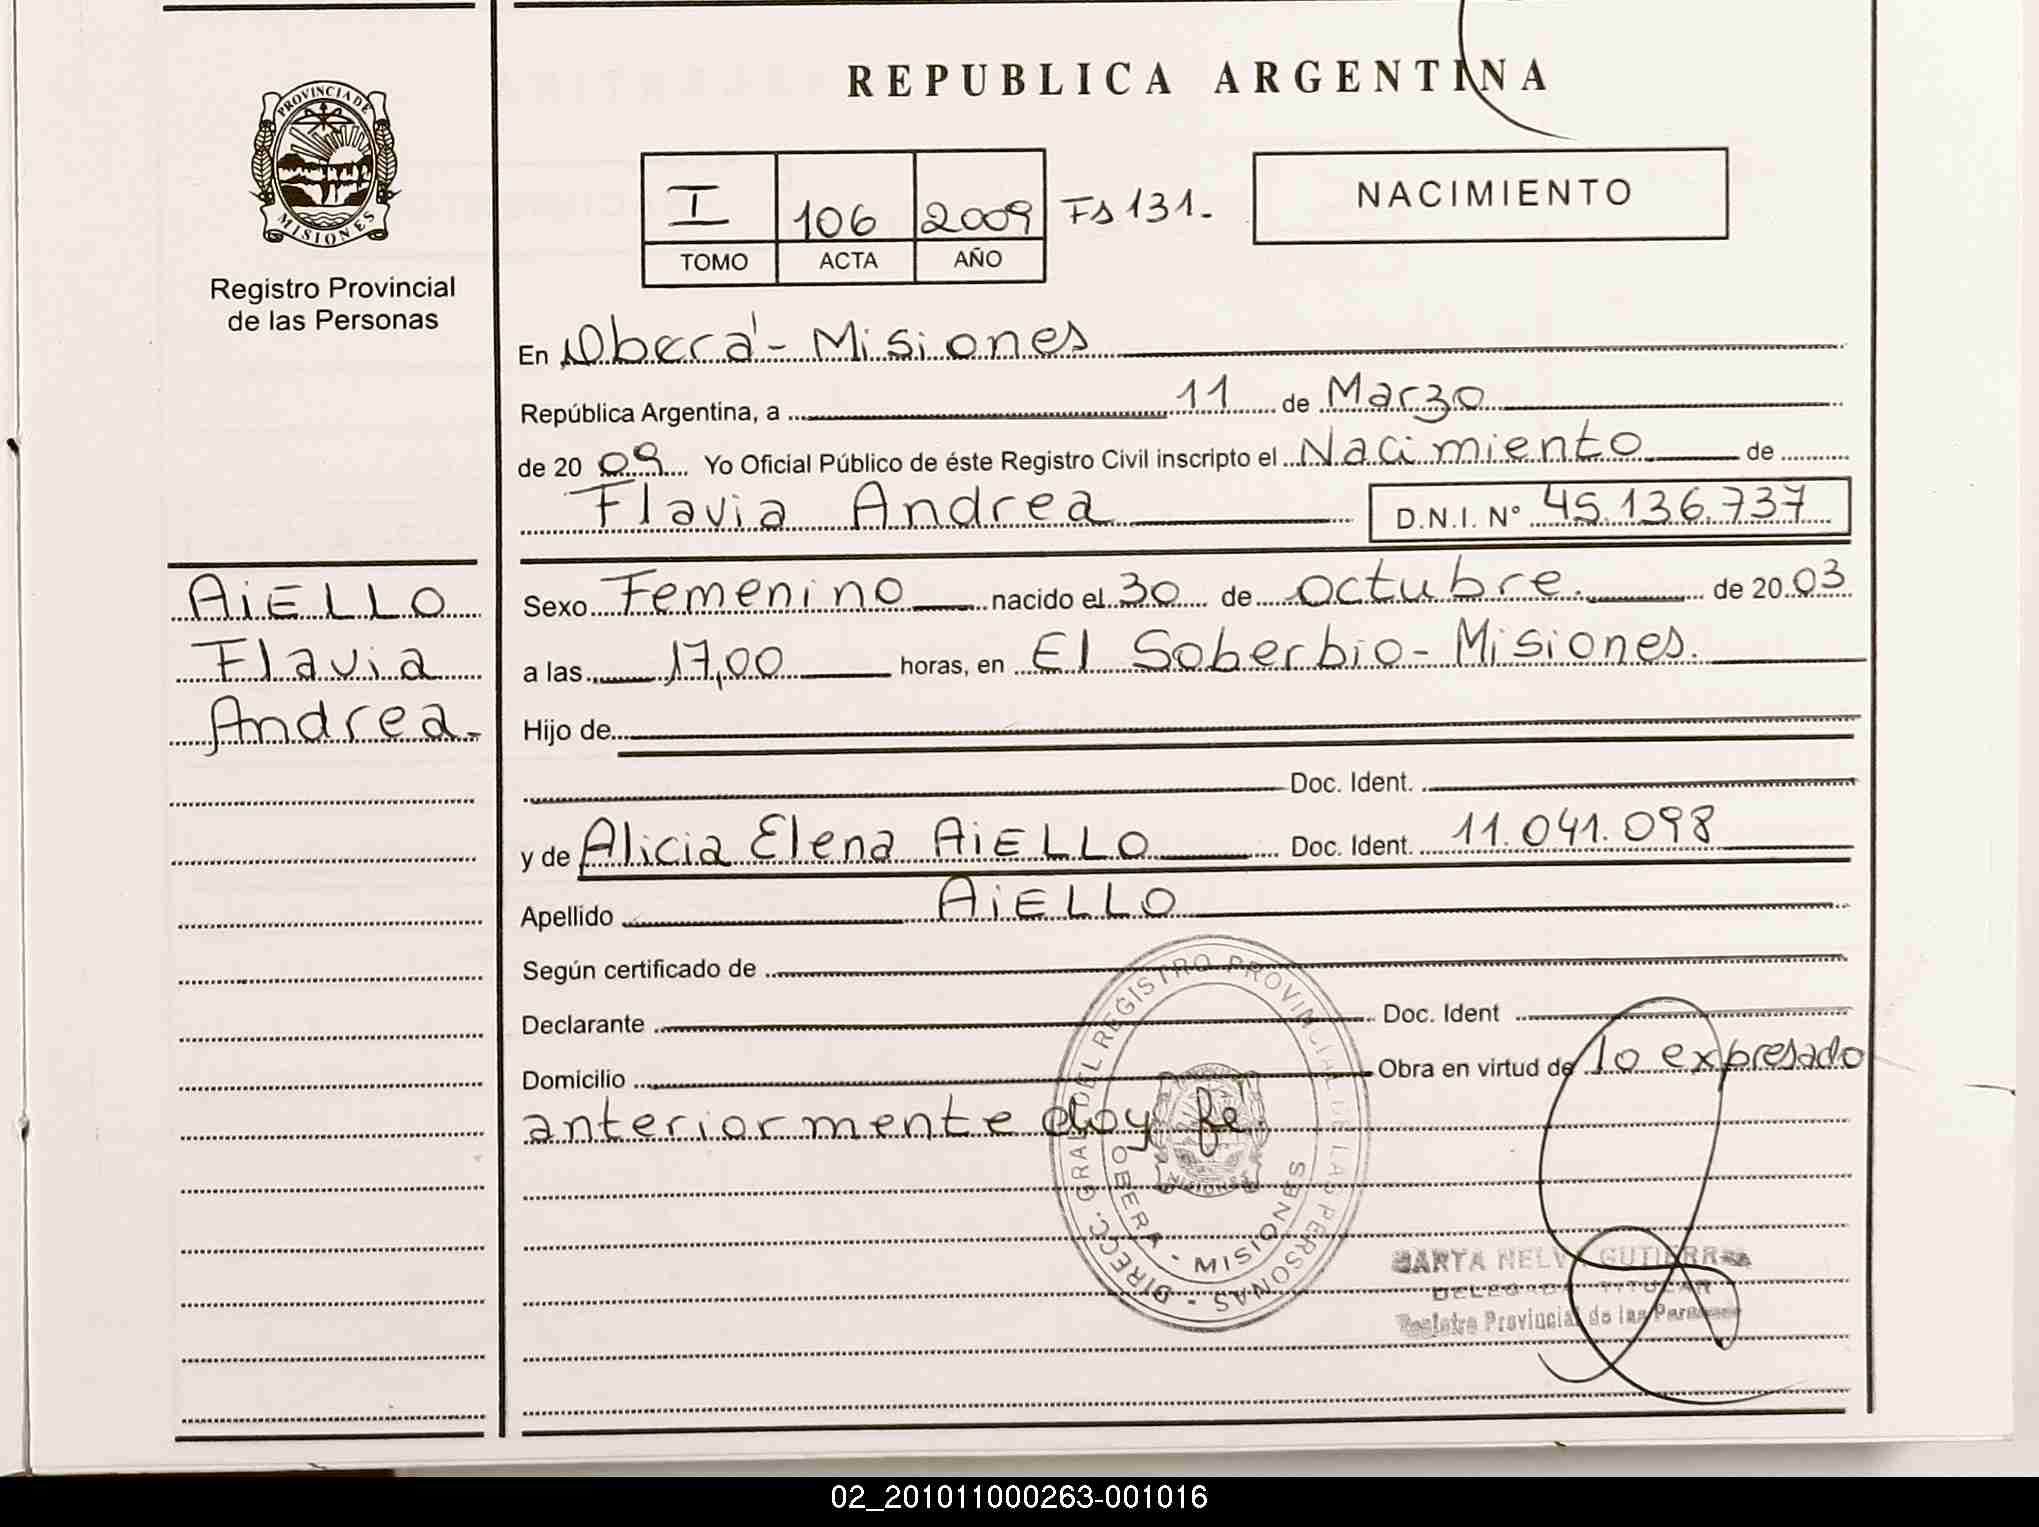 REPUBLICA ARGENTINA
PROVINCIA DE
MISIONES
Registro Provincial
de las Personas
I 106 2009 Fs 131.-
TOMO ACTA AÑO
NACIMIENTO
En Oberá - Misiones
República Argentina, a 11 de Marzo
de 20 09 Yo Oficial Público de éste Registro Civil inscripto el Nacimiento de
Flavia Andrea D.N.I. N° 45.136.737
AiELLO
Flavia
Andrea.-
Sexo Femenino nacido el 30 de octubre. de 20 03
a las 17,00 horas, en El Soberbio - Misiones.
Hijo de
Doc. Ident.
y de Alicia Elena AiELLO Doc. Ident. 11.041.098
Apellido AiELLO
Según certificado de
Declarante Doc. Ident
Domicilio Obra en virtud de lo expresado
anteriormente doy fe.
DIRECC. GRAL. DEL REGISTRO PROVINCIAL DE LAS PERSONAS
OBERA - MISIONES
MISIONES
MARTA NELV GUTIERREZ
DELEGADA TITULAR
Registro Provincial de las Personas
02_201011000263-001016